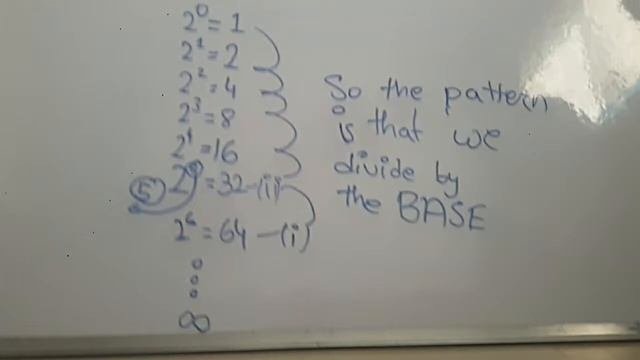 2⁰ = 1
2¹ = 2
2² = 4
2³ = 8
2⁴ = 16
⑤ 2 = 32 -(i)
2⁶ = 64 -(i)
∞
So the pattern
is that we
divide by
the BASE